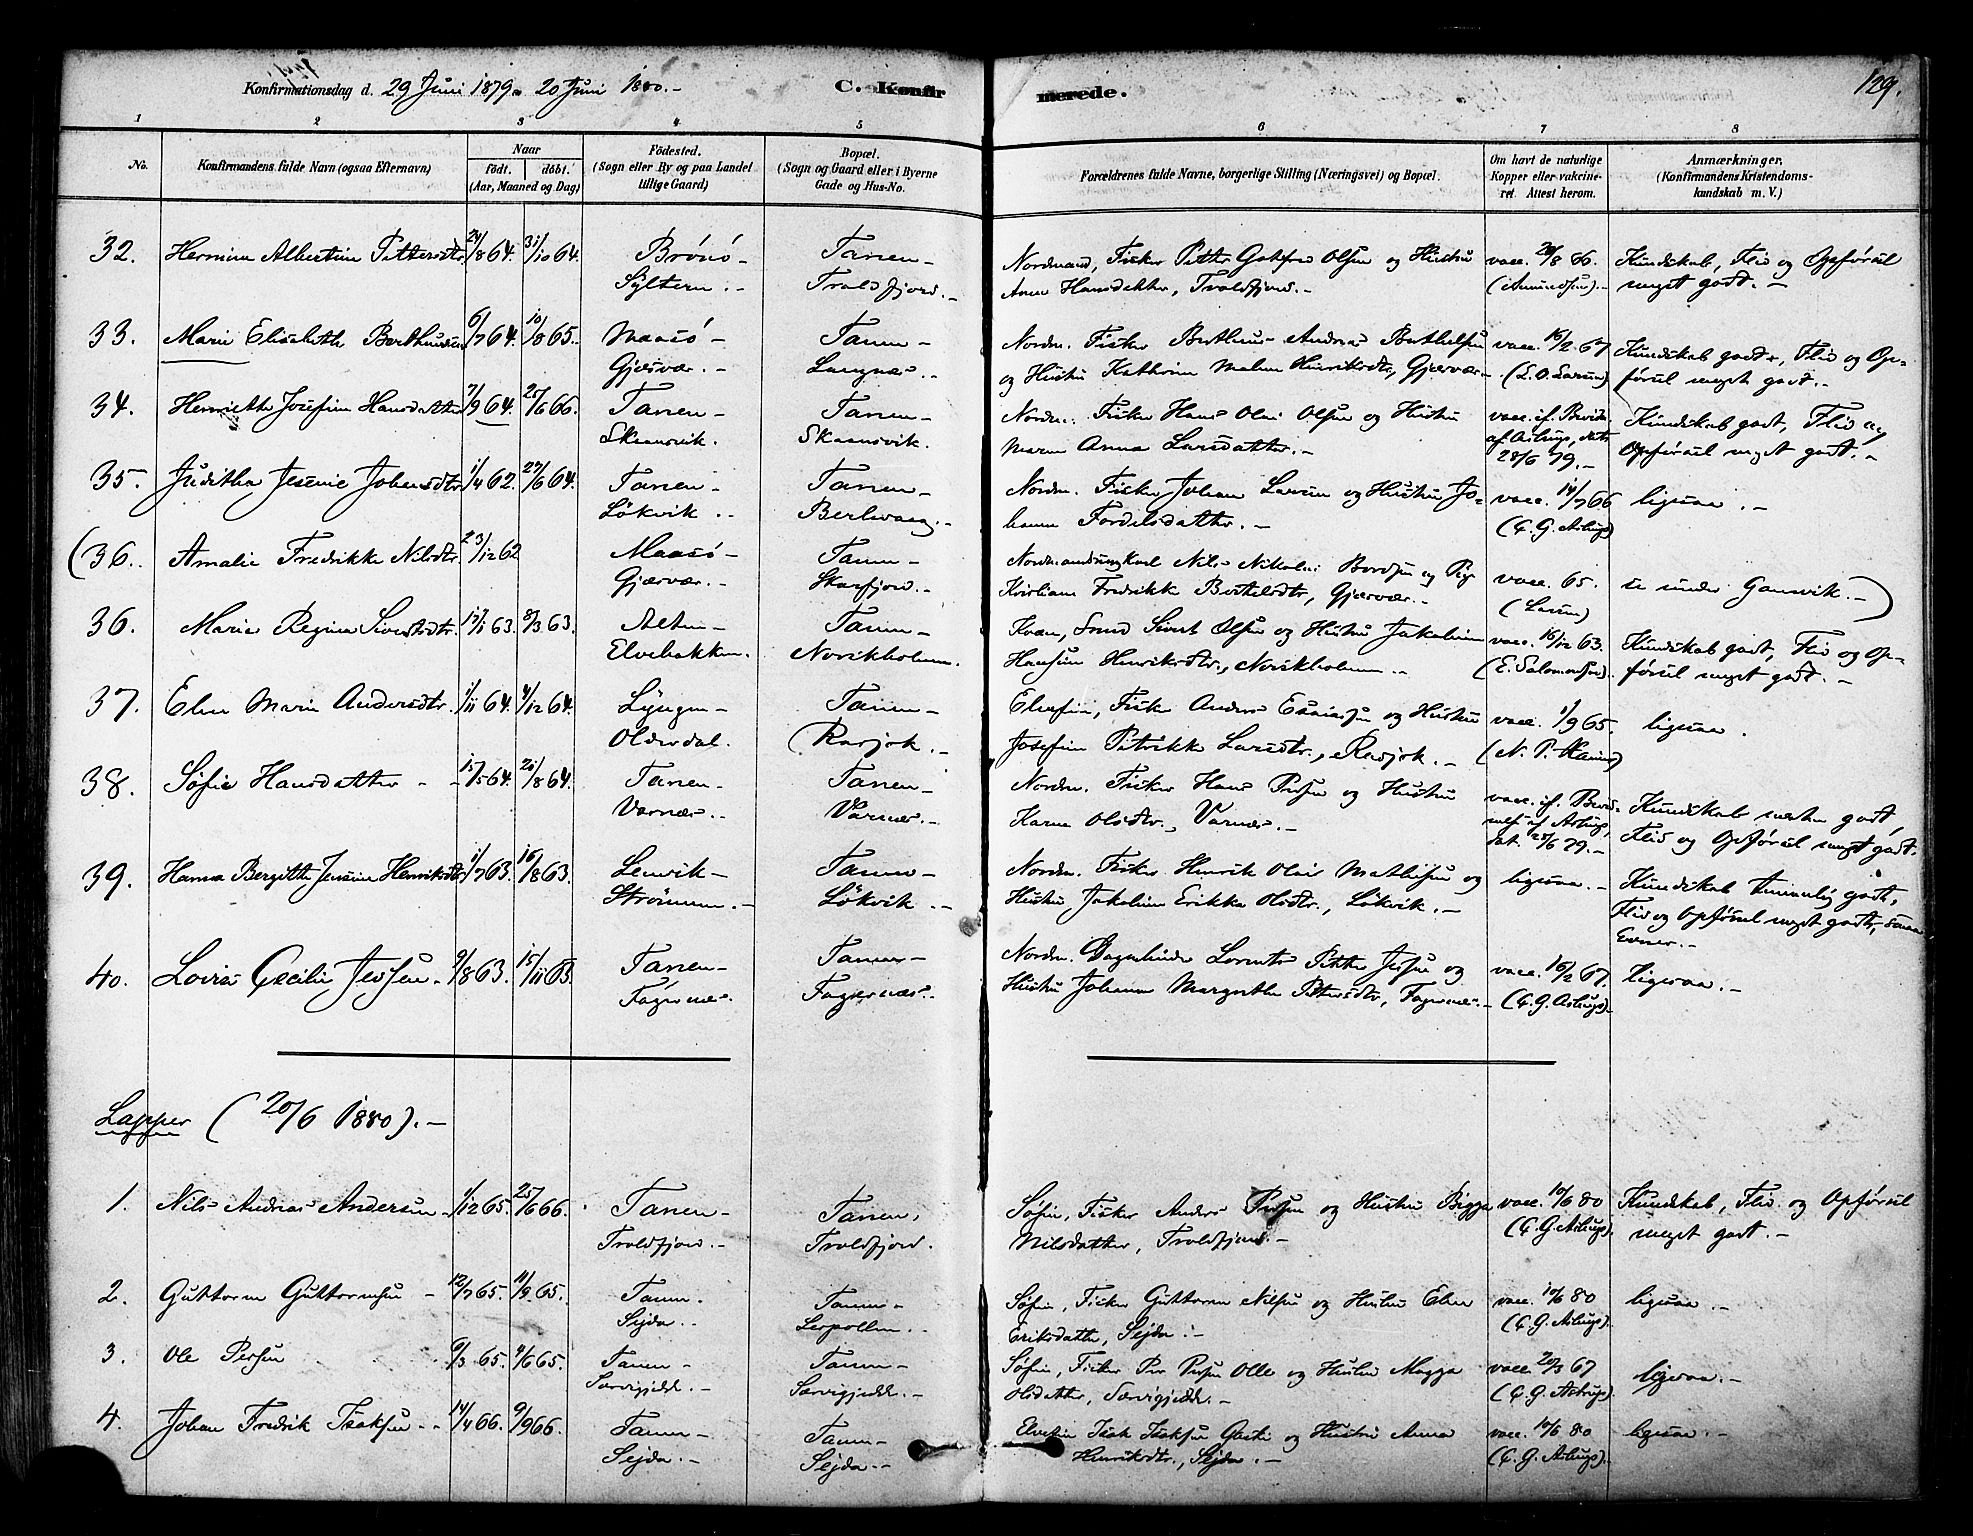 Konfirmationsdag d. 29 Juni 1879 20 Juni 1880.-
C. Konfirmerede.
129.
1 2 3 4 5 6 7 8
No.
Konfirmandens fulde Navn (ogsaa Efternavn)
Naar
født. døbt.
(Aar, Maaned og Dag)
Fødested.
(Sogn eller By og paa Landet
tillige Gaard)
Bopæl.
(Sogn og Gaard eller i Byerne
Gade og Hus-No.
Forældrenes fulde Navne, borgerlige Stilling (Næringsvei) og Bopæl.
Om havt de naturlige
Kopper eller vakcine-
ret. Attest herom.
Anmærkninger,
(Konfirmandens Kristendoms-
kundskab m. V.)
32. Hermine Albertine Pettersdtr 24/8 64. 31/10 64. Brönö- Tanen- Nordmand, Fisker Petter Olsen og Hustru vacc. (Amundsen).- Kundskab, Flid og Opförsel
Syltern.- Troldfjord.- Ane Hansdatter, Troldfjord.- meget godt.-
33. Marie Elisabeth Berthensen 6/7 64. 10/8 65. Maasö- Tanen- Nordm. Fisker Andreas Berthelsen vacc. 16/2 67 Kundskab godt, Flid og Op-
Gjæsvær.- Langnæs.- og Hustru Kathrine Malene Henriksdtr, Gjæsvær.- (L. O. Larsen) försel meget godt.-
34. Henriette Josefine Hansdatter 7/9 64. 25/6 66. Tanen- Tanen- Nordm. Fisker Hans Olai Olsen og Hustru vacc. if. Bevis Kundskab godt, Flid og
Skaansvik. Skaansvik. Maren Anna Larsdatter.- af Astrup, dat. 28/6 79.- Opförsel meget godt.-
35. Juditha Jesine Johansdtr 1/4 62. 27/6 64. Tanen- Tanen- Nordm. Fisker Johan Larsen og Hustru Jo- vacc. 14/7 66 ligesaa.-
Lökvik.- Berlevaag.- hanne Fordelsdatter.- (C. G. Astrup)
(36. Amalie Fredrikke Nilsdtr 23/12 62 Maasö- Tanen- Nordm. ungkarl Nils Nikolai Bordsen og Pige vacc. 65. er under Gamvik.-)
Gjæsvær.- Skarfjord.- Kristiane Fredrikke Berthelsdtr, Gjæsvær.- (Larsen)
36. Marie Regine Sivertsdtr. 17/1 63. 8/3 63. Alten- Tanen- Kvæn, Smed Sivert Olsen og Hustru Jakobine vacc. 16/12 63. Kundskab godt, Flid og Op-
Elvebakken. Norskholmen. Hansine Henriksdtr., Norskholmen.- (E. Salomonsen). försel meget godt.-
37. Elen Marie Andersdtr. 1/11 64. 4/12 64. Lyngen- Tanen- Elvefin, Fisker Anders Esaiassen og Hustru vacc. 1/9 65. ligesaa.
Olderdal. Rasjok.- Josefine Petrikke Larsdtr., Rasjok.- (N. P. Hansen)
38. Søfie Hansdatter - 15/5 64. 21/8 64. Tanen- Tanen- Nordm. Fisker Hans Persen og Hustru vacc. if. Bevid- Kundskab næsten godt,
Værnæs.- Varnæs.- Karen Olsdtr., Varnæs.- nelse af Astrup, dat. 25/6 79.- Flid og Opförsel meget godt.
39. Hanna Bergitte Jensine Henriksdtr 1/7 63. 16/8 63. Lenvik- Tanen- Nordm. Fisker Henrik Olai Mathisen og ligesaa.- Kundskab temmelig godt,
Strömmen.- Lökvik.- Hustru Jakobine Erikka Olsdtr., Lökvik.- Flid og Opförsel meget godt, smaa Evner.-
40. Lovise Cecilie Jessen- 9/8 63. 15/11 63. Tanen- Tanen- Nordm. Lorents Petter Jessen og vacc. 16/2 67. ligesaa.-
Fagernæs. Fagernæs.- Hustru Johanna Margrethe Pettersdtr, Fagernæs.- (C. G. Astrup)-
Lapper (20/6 1880).-
1. Nils Andreas Andersen 1/12 65. 25/6 66. Tanen- Tanen, Søfin, Fisker Anders Persen og Hustru Bigga vacc. 10/6 80 Kundskab, Flid og Opförsel
Troldfjord.- Troldfjord. Nilsdatter, Troldfjord.- (C. G. Astrup). meget godt.-
2. Guttorm Guttormsen - 12/7 65. 11/9 65. Tanen. Tanen- Søfin, Fisker Guttorm Nilsen og Hustru Elen vacc. 10/6 80 ligesaa.-
Sejda.- Leopollen.- Eriksdatter, Sejda.- (C. G. Astrup).
3. Ole Persen 6/3 65. 4/6 65. Tanen- Tanen- Søfin, Fisker Per Persen Olle og Hustru Magga vacc. 20/3 67 ligesaa.-
Særvigjedde.- Særvigjedde.- Olsdatter, Særvigjedde.- (C. G. Astrup)
4. Johan Fredrik Isaksen- 14/4 66. 9/9 66. Tanen- Tanen- Elvefin Isak Isaksen og Hustru Anna vacc. 10/6 80 ligesaa.-
Sejda.- Sejda.- Henriksdtr., Sejda.- (C. G. Astrup).